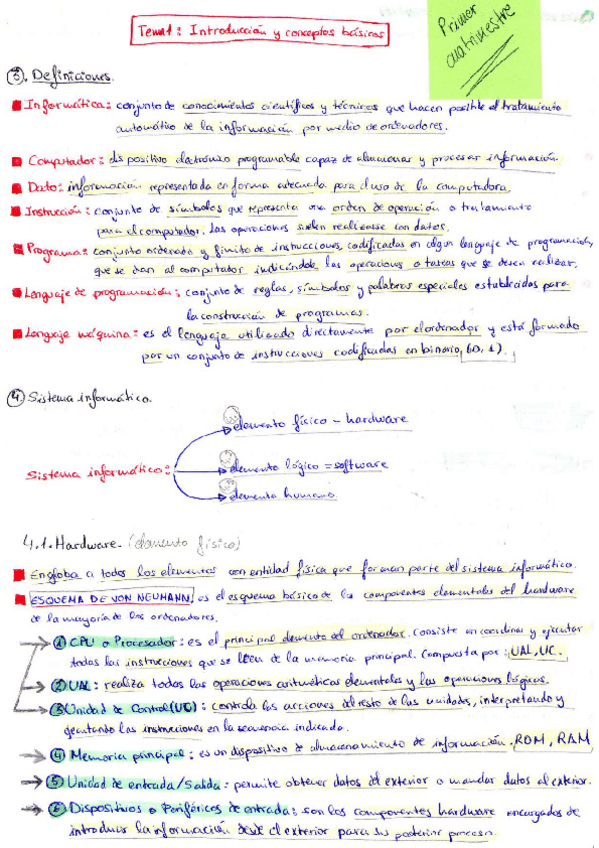 Primer
cuatrimestre
Tema 1: Introducción y conceptos básicos
③. Definiciones.
Informática: conjunto de conocimientos científicos y técnicos que hacen posible el tratamiento
automático de la información por medio de ordenadores.
Computador: dispositivo electrónico programable capaz de almacenar y procesar información.
Dato: información representada en forma adecuada para el uso de la computadora.
Instrucción: conjunto de símbolos que representa una orden de operación o tratamiento
para el computador. Las operaciones suelen realizarse con datos.
Programa: conjunto ordenado y finito de instrucciones, codificadas en algun lenguaje de programación,
que se dan al computador indicándole las operaciones o tareas que se desea realizar.
Lenguaje de programación: conjunto de reglas, símbolos y palabras especiales establecidas para
la construcción de programas.
Lenguaje máquina: es el lenguaje utilizado directamente por el ordenador y está formado
por un conjunto de instrucciones codificadas en binario, (0, 1).
④. Sistema informático.
elemento físico - hardware
Sistema informático:
elemento lógico = software
elemento humano
4.1. Hardware. (elemento físico)
Engloba a todos los elementos con entidad física que forman parte del sistema informático.
ESQUEMA DE VON NEUMANN: es el esquema básico de los componentes elementales del hardware
de la mayoría de los ordenadores.
① CPU o Procesador: es el principal elemento del ordenador. Consiste en coordinar y ejecutar
todas las instrucciones que se leen de la memoria principal. Compuesta por: UAL, UC.
② UAL: realiza todas las operaciones aritméticas elementales y las operaciones lógicas.
③ Unidad de Control (UC): controla las acciones del resto de las unidades, interpretando y
ejecutando las instrucciones en la secuencia indicada.
④ Memoria principal: es un dispositivo de almacenamiento de información. ROM, RAM
⑤ Unidad de entrada/Salida: permite obtener datos del exterior o mandar datos al exterior.
⑥ Dispositivos o Periféricos de entrada: son los componentes hardware encargados de
introducir la información desde el exterior para su posterior proceso.